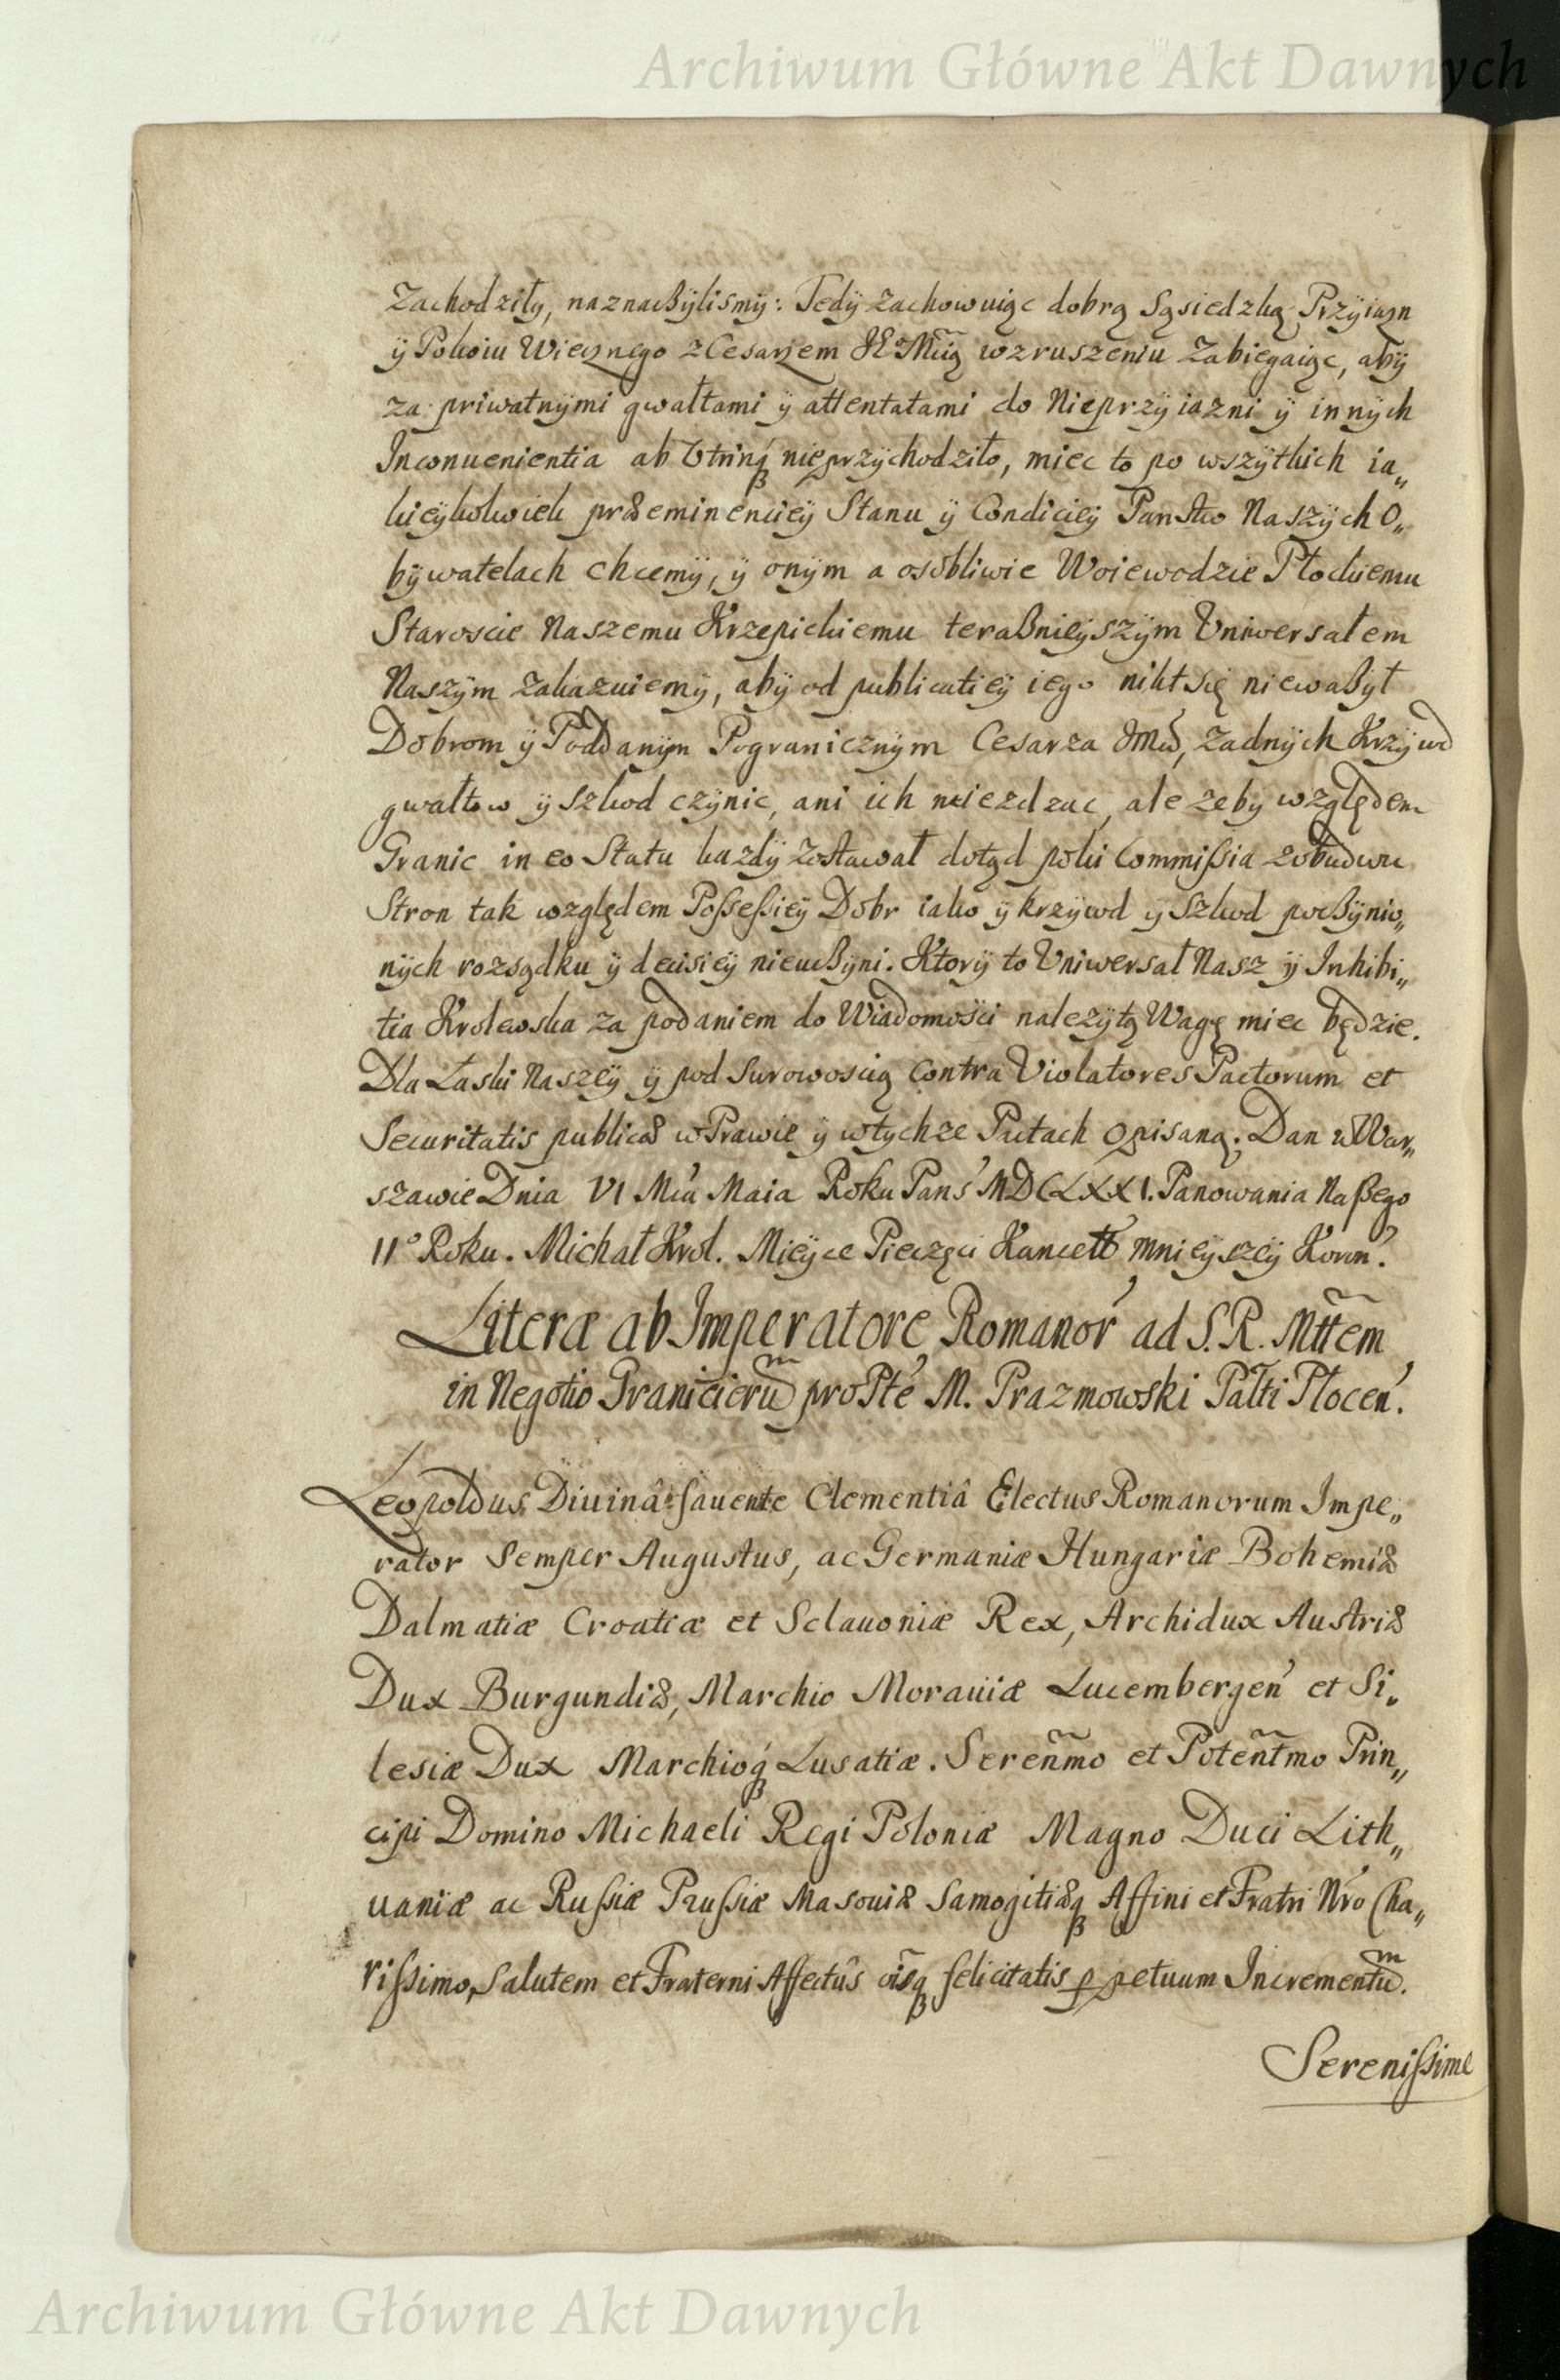 Archiwum Główne Akt Dawnych
Zachodziły, naznaßÿlismÿ: Tedÿ zachowuiąc dobrą Sąsiedzką Przÿiazn
ÿ Pokoiu Wiecznego z Cesarzem JE° Mcią wzruszeniu Zabiegaiąc, abÿ
za priwatnÿmi gwałtami ÿ attentatami do Nieprzÿiazni ÿ innÿch
Inconuenientia ab Utrinq́ nieprzÿchodziło, miec to po wszÿtkich ia„
kieÿkolwiek præeminenciеÿ Stanu ÿ Condicieÿ Panstw Naszÿch O„
bÿwatelach chcemÿ, ÿ onÿm a osobliwie Woiewodzie Płockiemu
Staroscie Naszemu Krzepickiemu teraßnieÿszÿm Uniwersałem
Naszÿm Zakazuiemÿ, abÿ od publicatieÿ iego nikt się niewaßÿł
Dobrom ÿ Poddanÿm Pogranicznÿm Cesarza JMci, żadnÿch Krzÿwd
gwałtow ÿ Szkod czÿnic, ani ich naiezdzac, ale zeby względem
Granic in eo Statu kazdÿ zostawał dotąd poki Commißia zobudwu
Stron tak względem Poßeßieÿ Dobr iako ÿ krzÿwd ÿ Szkod poßÿnio„
nÿch rozsądku ÿ decisieÿ nieußÿni. Ktorÿ to Uniwersał Nasz ÿ Inhibi„
tia Krolewska za podaniem do Wiadomości należÿtą Wagę miec będzie.
Dla Łaski Naszeÿ ÿ pod Surowoscią Contra Violatores Pactorum et
Securitatis publicæ w Prawie ÿ wtychze Pactach opisaną. Dan w War„
szawie Dnia VI Mca Maia Roku Pans' MDCLXXI. Panowania Naßego
II° Roku. Michał Krol. Mieÿce Pieczęci Kancell' mnieÿszeÿ Koron'.
Literæ ab Imperatore Romanor' ad S. R. Mttem
in Negotio Graniticieru͂m pro Ptē M. Prazmowski Palti Płocen'.
Leopoldus Diuinâ fauente Clementiâ Electus Romanorum Impe„
rator Semper Augustus, ac Germaniæ Hungariæ Bohemiæ
Dalmatiæ Croatiæ et Sclauoniæ Rex, Archidux Austriæ
Dux Burgundiæ, Marchio Morauiæ Lucembergen' et Si„
lesiæ Dux Marchioq́ Lusatiæ. Sereñmo et Poteñtmo Prin„
cipi Domino Michaeli Regi Poloniæ Magno Duci Lith„
uaniæ ac Rußiæ Prußiæ Masouiæ Samogitiæq Affini et Fratri Nr'o Cha„
rißimo, Salutem et Fraterni Affectûs oĩsq felicitatis ꝑpetuum Incrementũm.
Serenißime
Archiwum Główne Akt Dawnych